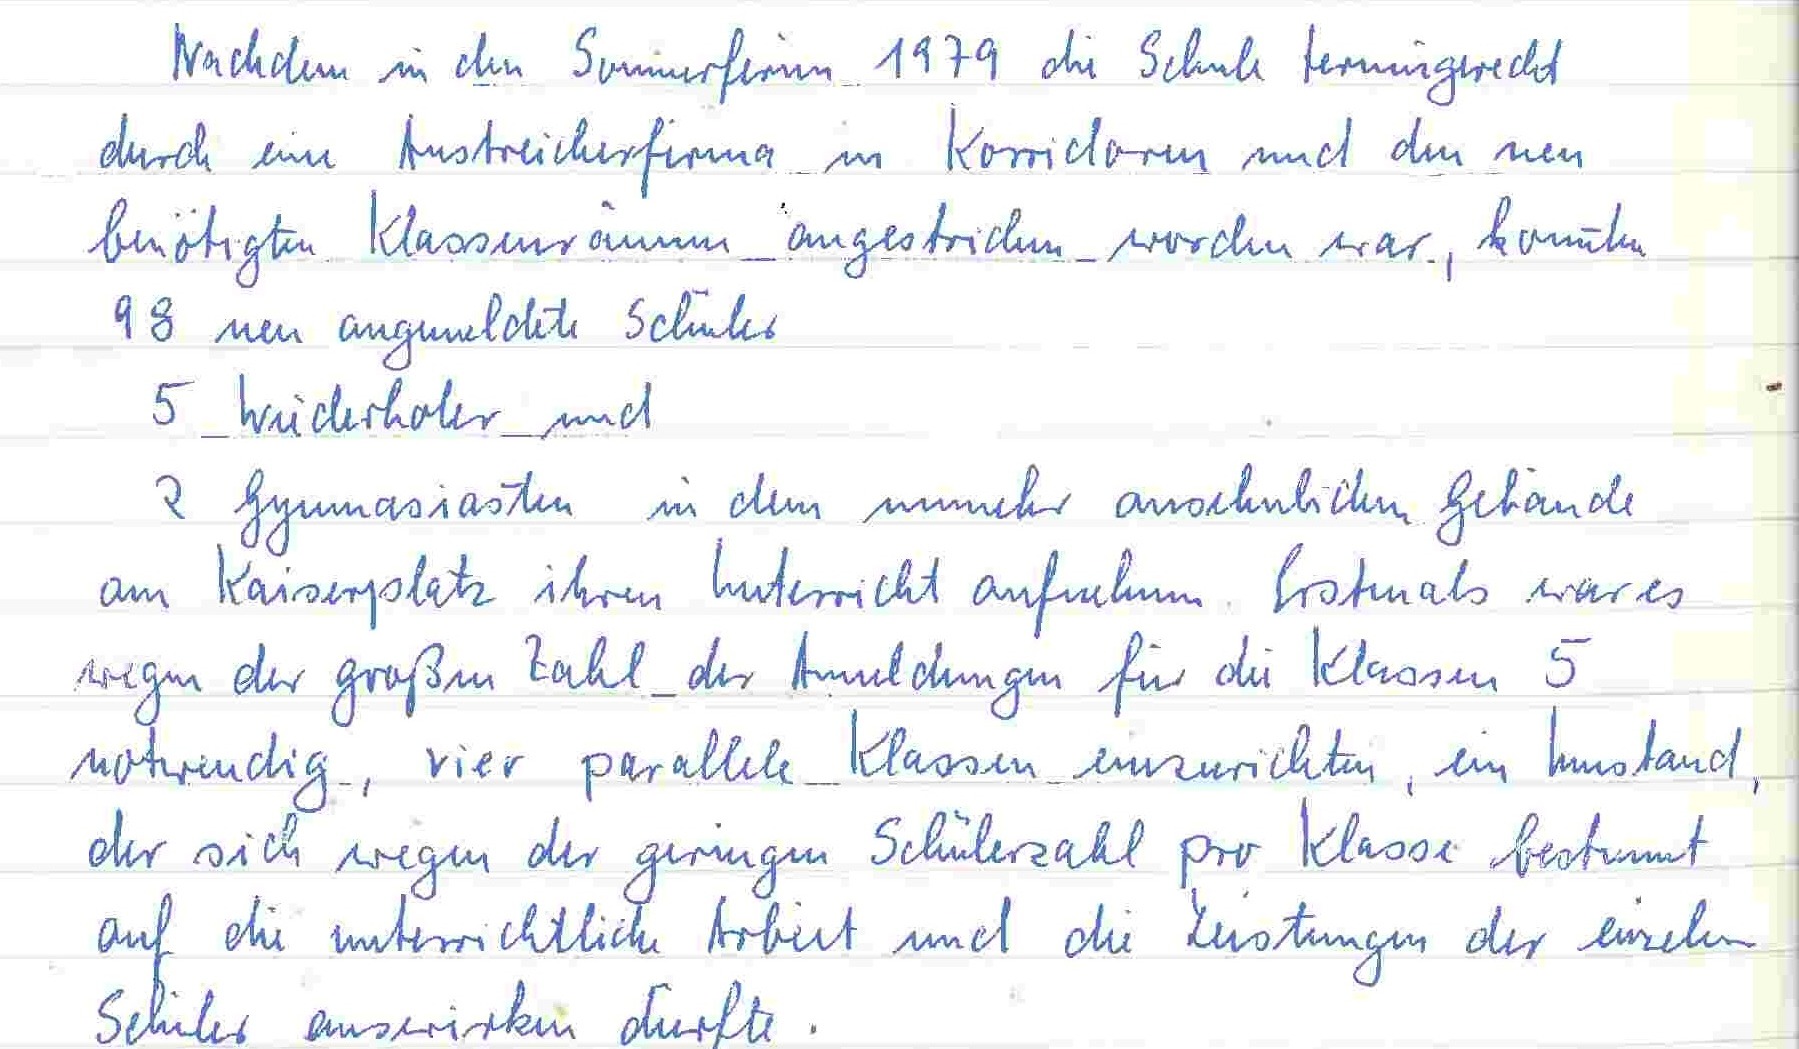 Nachdem in den Sommerferien 1979 die Schule termingerecht
durch eine Anstreicherfirma in Korridoren und den neu
benötigten Klassenräumen angestrichen worden war, konnten
98 neu angemeldete Schüler
5 Wiederholer und
2 Gymnasiasten in dem nunmehr ansehnlichen Gebäude
am Kaiserplatz ihren Unterricht aufnehmen. Erstmals war es
wegen der großen Zahl der Anmeldungen für die Klassen 5
notwendig, vier parallele Klassen einzurichten, ein Umstand,
der sich wegen der geringen Schülerzahl pro Klasse bestimmt
auf die unterrichtliche Arbeit und die Leistungen der einzelnen
Schüler auswirken dürfte.